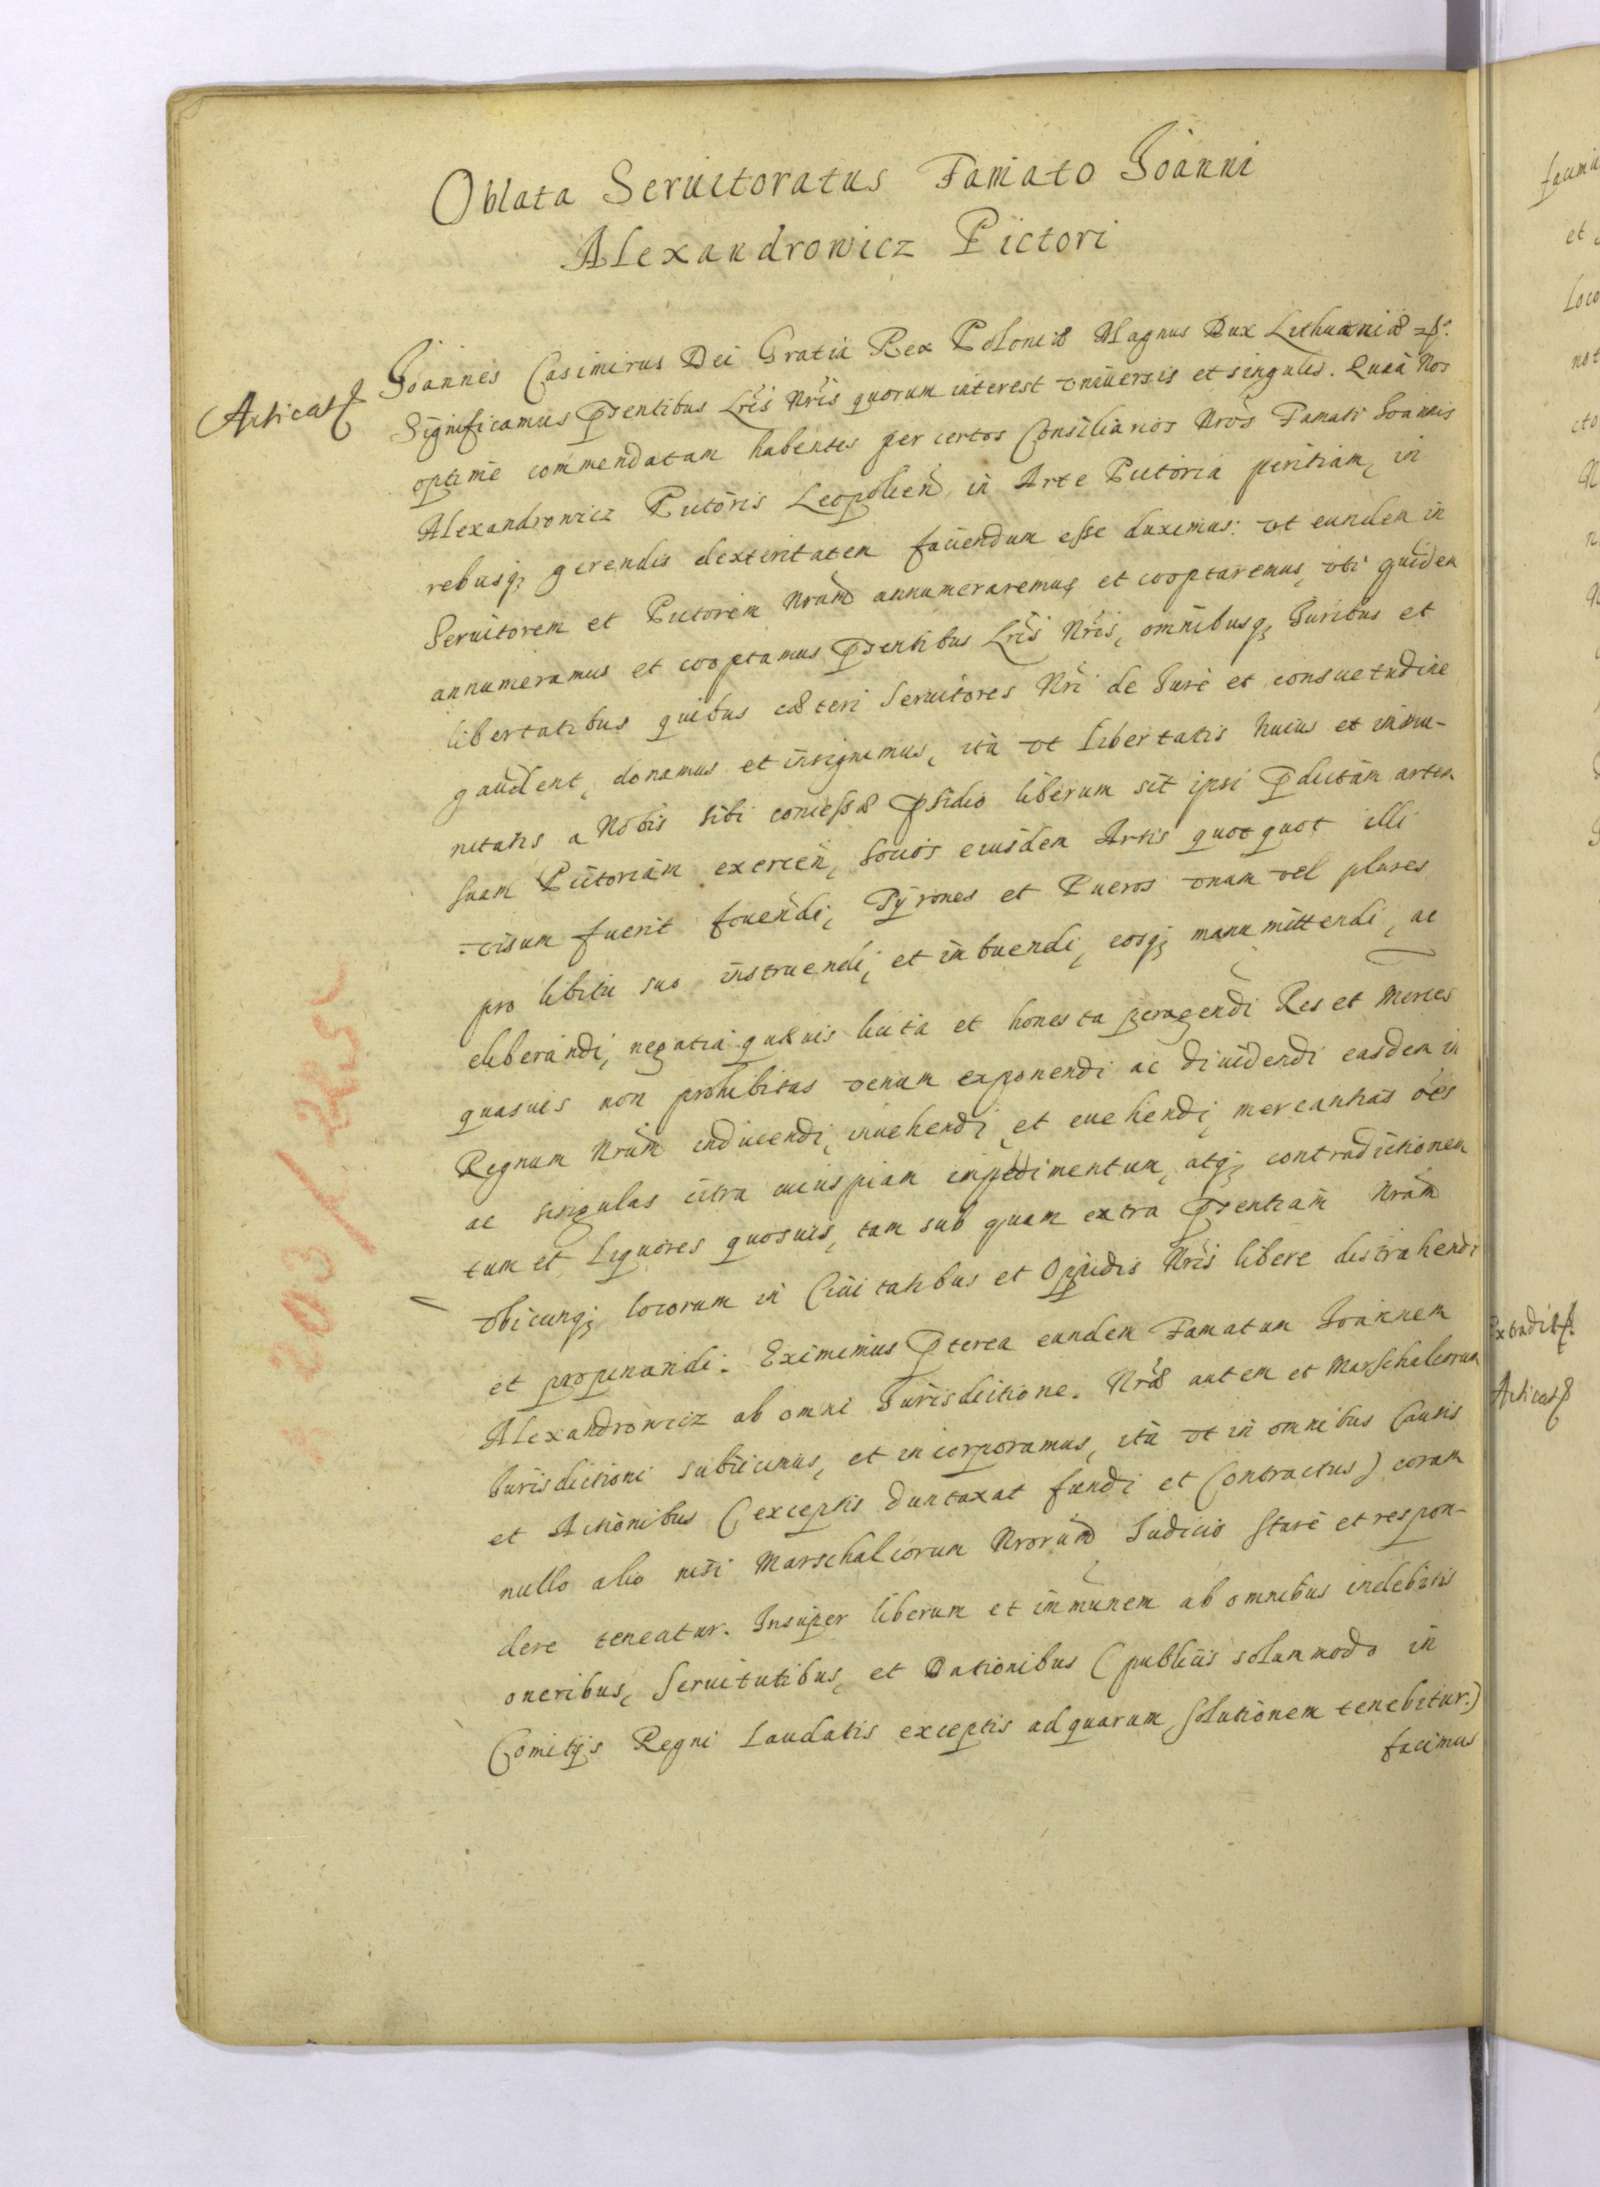 Oblata Seruitoratus Famato Joanni
Alexandrowicz Pictori
Joannes Casimirus Dei Gratia Rex Poloniæ Magnus Dux Lithuaniæ
Significamus Pntibus Lris Nris quorum interest vniuersis et singulis. Quia Nos
optime commendatam habentes per certos Consiliarios Nros Famati Joannis
Alexandrowicz Pictoris Leopolien in Arte Pictoria peritiam, in
rebusq; gerendis dexteritatem faciendum esse duximus: vt eundem in
Seruitorem et Pictorem Nrum annumeraremus et cooptaremus, vti quidem
annumeramus et cooptamus Pntibus Lris Nris, omnibusq; Juribus et
libertatibus quibus cæteri Seruitores Nri de Jure et consuetudine
gaudent, donamus et insignimus, ita vt libertatis huius et immu-
nitatis a Nobis sibi concessæ psidio liberum sit ipsi pdictam artem
suam Pictoriam exercen, socios eiusdem Artis quotquot illi
visum fuerit fouendi, Tyrones et Pueros vnum vel plures
pro libitu suo instruendi, et imbuendi, eosq; manumittendi, ac
eliberandi, negotia quæuis licita et honesta peragendi Res et Merces
quasuis non prohibitas venum exponendi ac diuidendi easdem in
Regnum Nrum inducendi, inuehendi, et euehendi, mercantias oes
ac singulas citra cuiuspiam impedimentum, atq; contradictionem
tum et Liquores quosuis, tam sub quam extra Pntiam Nram
vbicunq; locorum in Ciuitatibus et Oppidis Nris libere distrahendi
et propinandi. Eximimus Pterea eundem Famatum Joannem
Alexandrowicz ab omni Jurisdictione. Nræ autem et Marschalcorum
Jurisdictioni subiicimus, et incorporamus, ita vt in omnibus Causis
et Actionibus (exceptis duntaxat fundi et Contractus) coram
nullo alio nisi Marschalcorum Nrorum Judicio stare et respon-
dere teneatur. Insuper liberum et immunem ab omnibus indebitis
oneribus, Seruitutibus, et Dationibus (publicis solummodo in
Comitijs Regni Laudatis exceptis ad quarum solutionem tenebitur.)
facimus